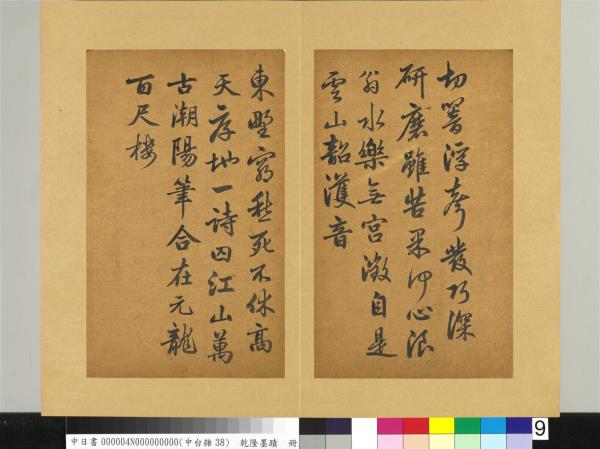 切響浮聲發巧深
研磨雖苦果何心浪
翁水樂無宮徵自是
雲山韶濩音
東野窮愁死不休高
天厚地一詩囚江山萬
古潮陽筆合在元龍
百尺樓
中日書 000004N000000000(中台雜 38) 乾隆墨蹟 冊
9